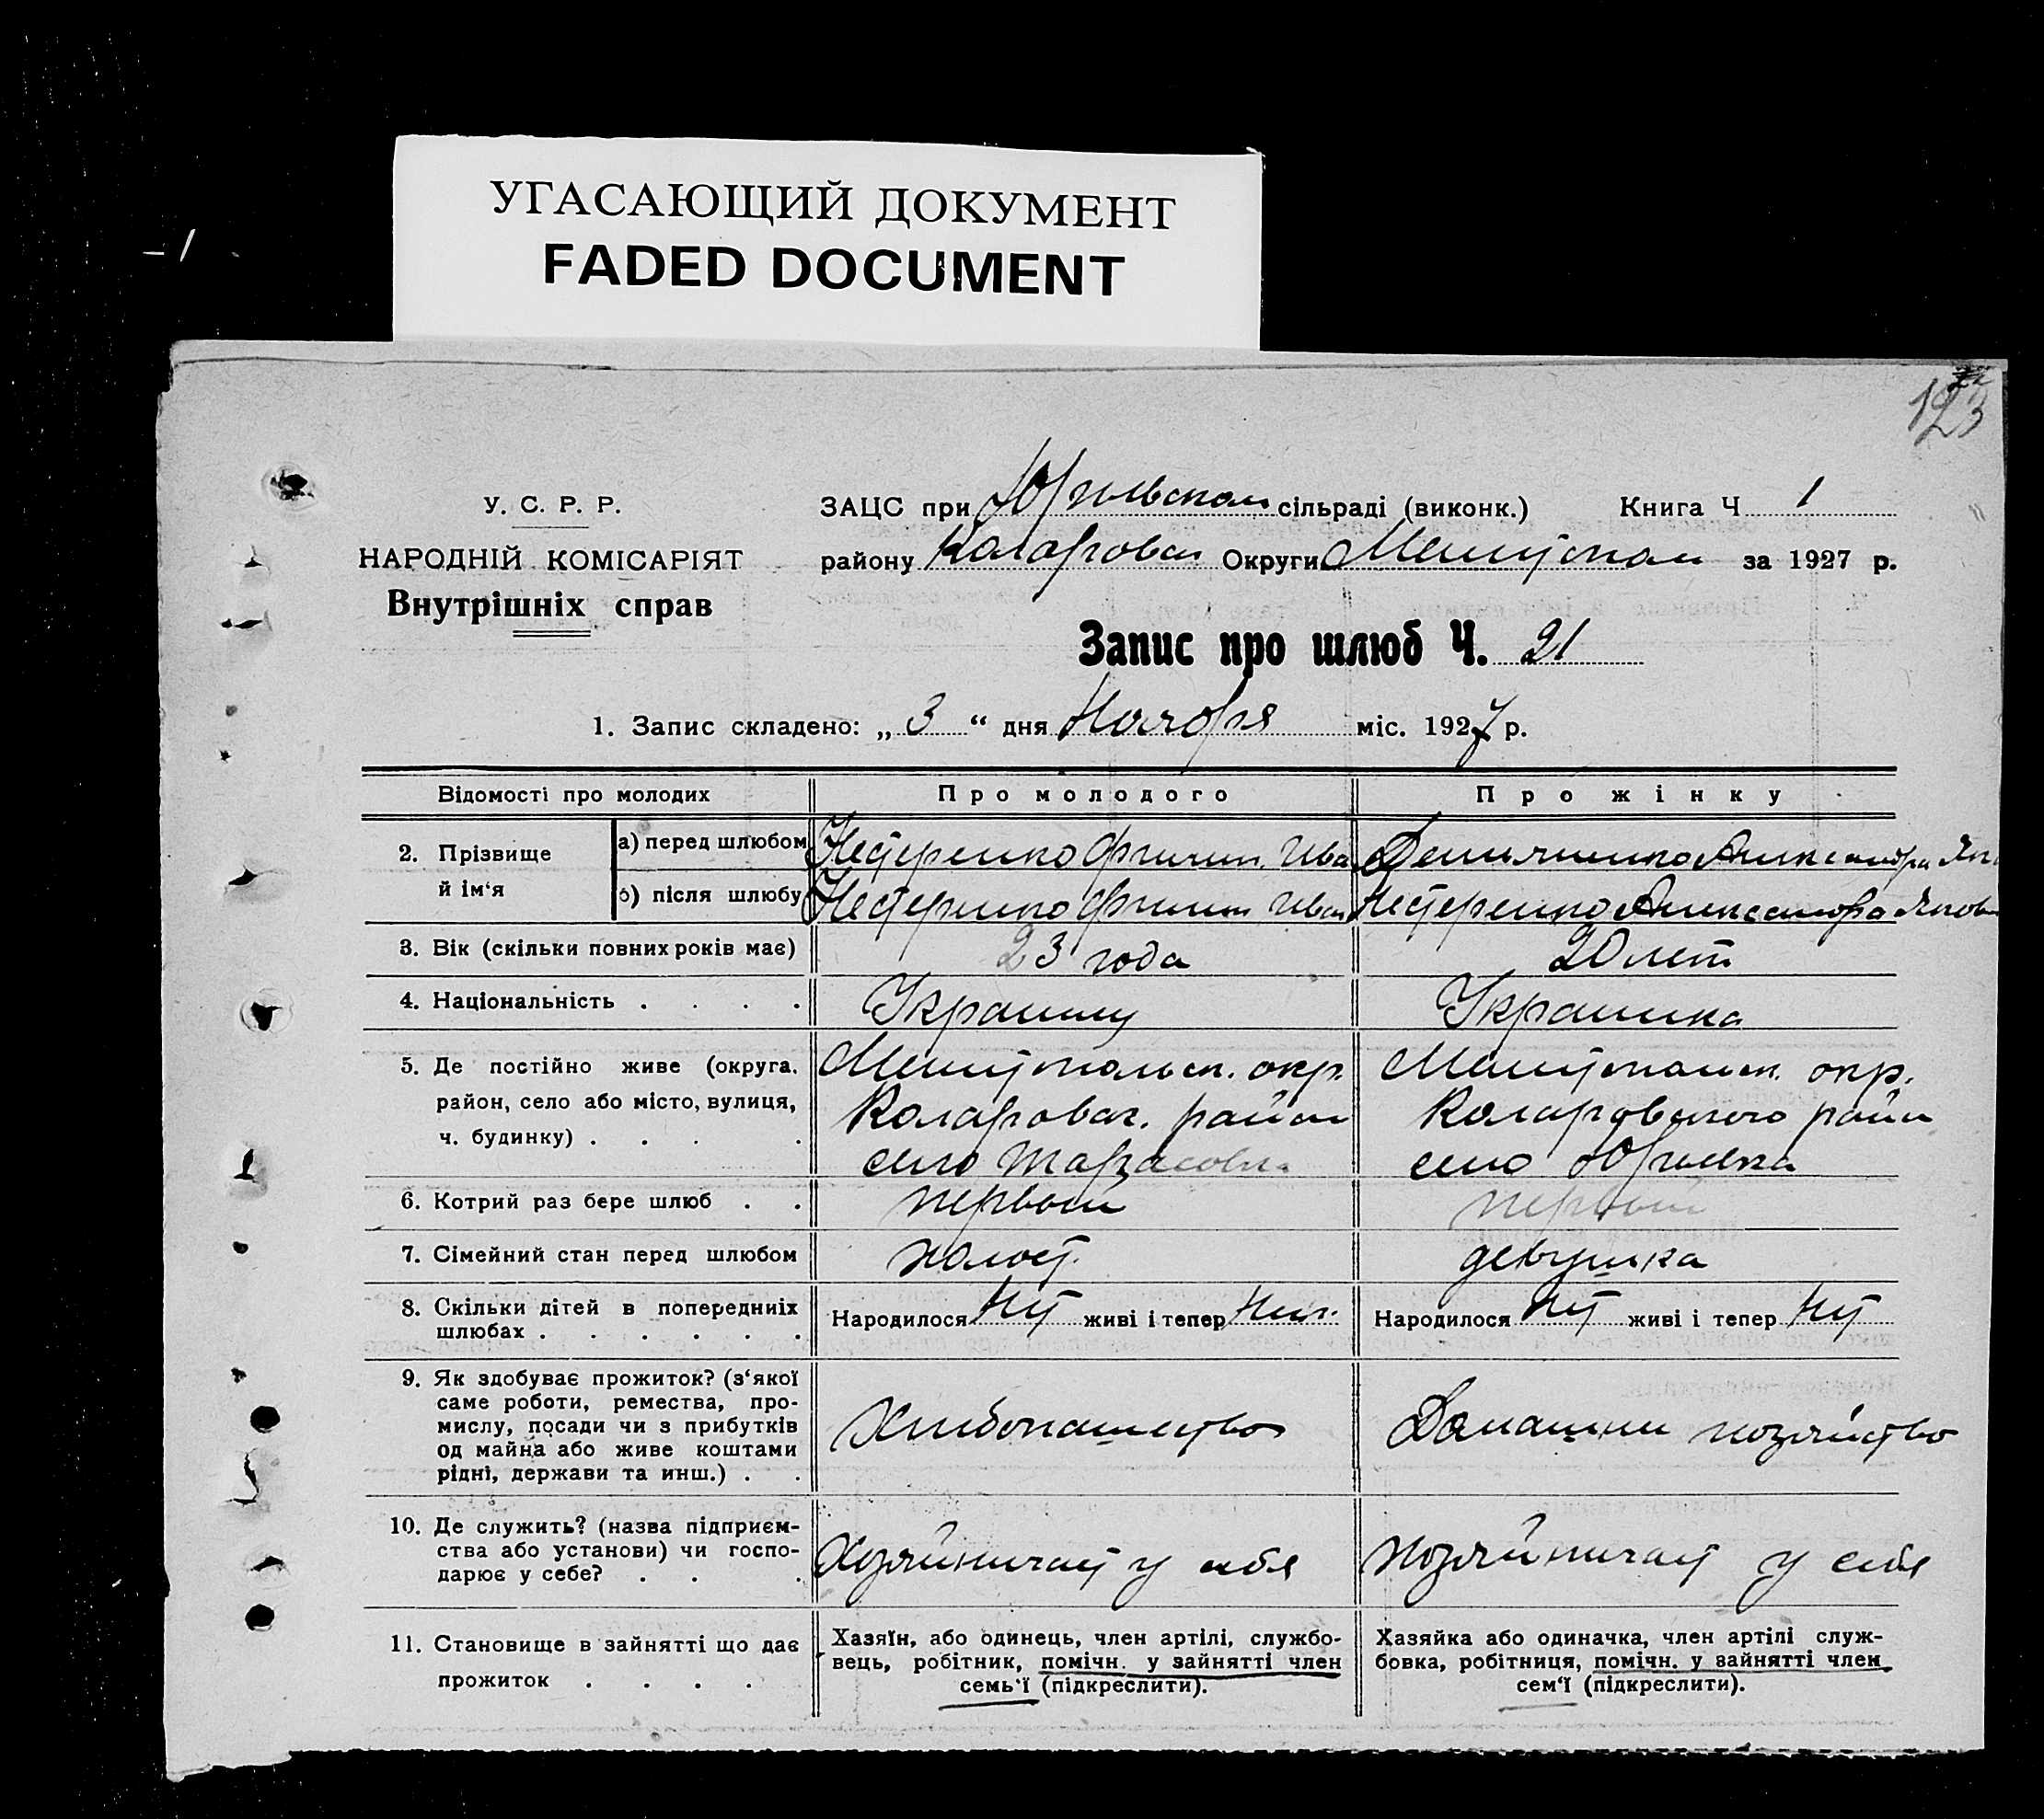 УГАСАЮЩИЙ ДОКУМЕНТ
FADED DOCUMENT
123
У. С. Р. Р.
НАРОДНІЙ КОМІСАРІЯТ
Внутрішніх справ
ЗАЦС при Юрьевском сільраді (виконк.) Книга Ч 1
району Коларовск Округи Мелитопол за 1927 р.
Запис про шлюб Ч. 21
1. Запис складено: „ 3 “ дня Ноября міс. 1927 р.
Відомості про молодих
Про молодого
Про жінку
2. Прізвище й ім‘я
а) перед шлюбом
Нестеренко Филип. Ива
Александра Як
б) після шлюбу
Нестеренко Филип Иван
Нестеренко Александра Яков
3. Вік (скільки повних років має)
23 года
20 лет
4. Національність . . . .
Украинц
Украинка
5. Де постійно живе (округа,
район, село або місто, вулиця,
ч. будинку) . . . .
Мелитопольск. окр.
Коларовск. район
село Тарасовка
Мелитопольск. окр.
Коларовского район
село Юрьевка
6. Котрий раз бере шлюб . .
первый
первый
7. Сімейний стан перед шлюбом
холост.
девушка
8. Скільки дітей в попередниіх
шлюбах . . . . . .
Народилося нет живі і тепер нет
Народилося нет живі і тепер нет
9. Як здобуває прожиток? (з‘якої
саме роботи, ремества, про-
мислу, посади чи з прибутків
од майна або живе коштами
рідні, держави та инш.) . .
Хлебопашество
Домашни хозяйство
10. Де служить? (назва підприєм-
ства або установи) чи госпо-
дарює у себе? . . .
Хозяйничает у себя
хозяйничает у себя
11. Становище в зайнятті що дає
прожиток . . . .
Хазяїн, або одинець, член артілі, службо-
вець, робітник, помічн. у зайнятті член
семь‘ї (підкреслити).
Хазяйка або одиначка, член артілі служ-
бовка, робітниця, помічн. у зайнятті член
сем‘ї (підкреслити).